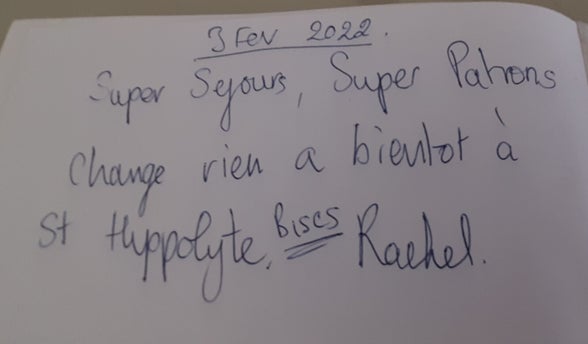 3 Fev 2022.
Super Sejours, Super Patrons
Change rien a bientot à
St Hyppolyte, Bises Rachel.